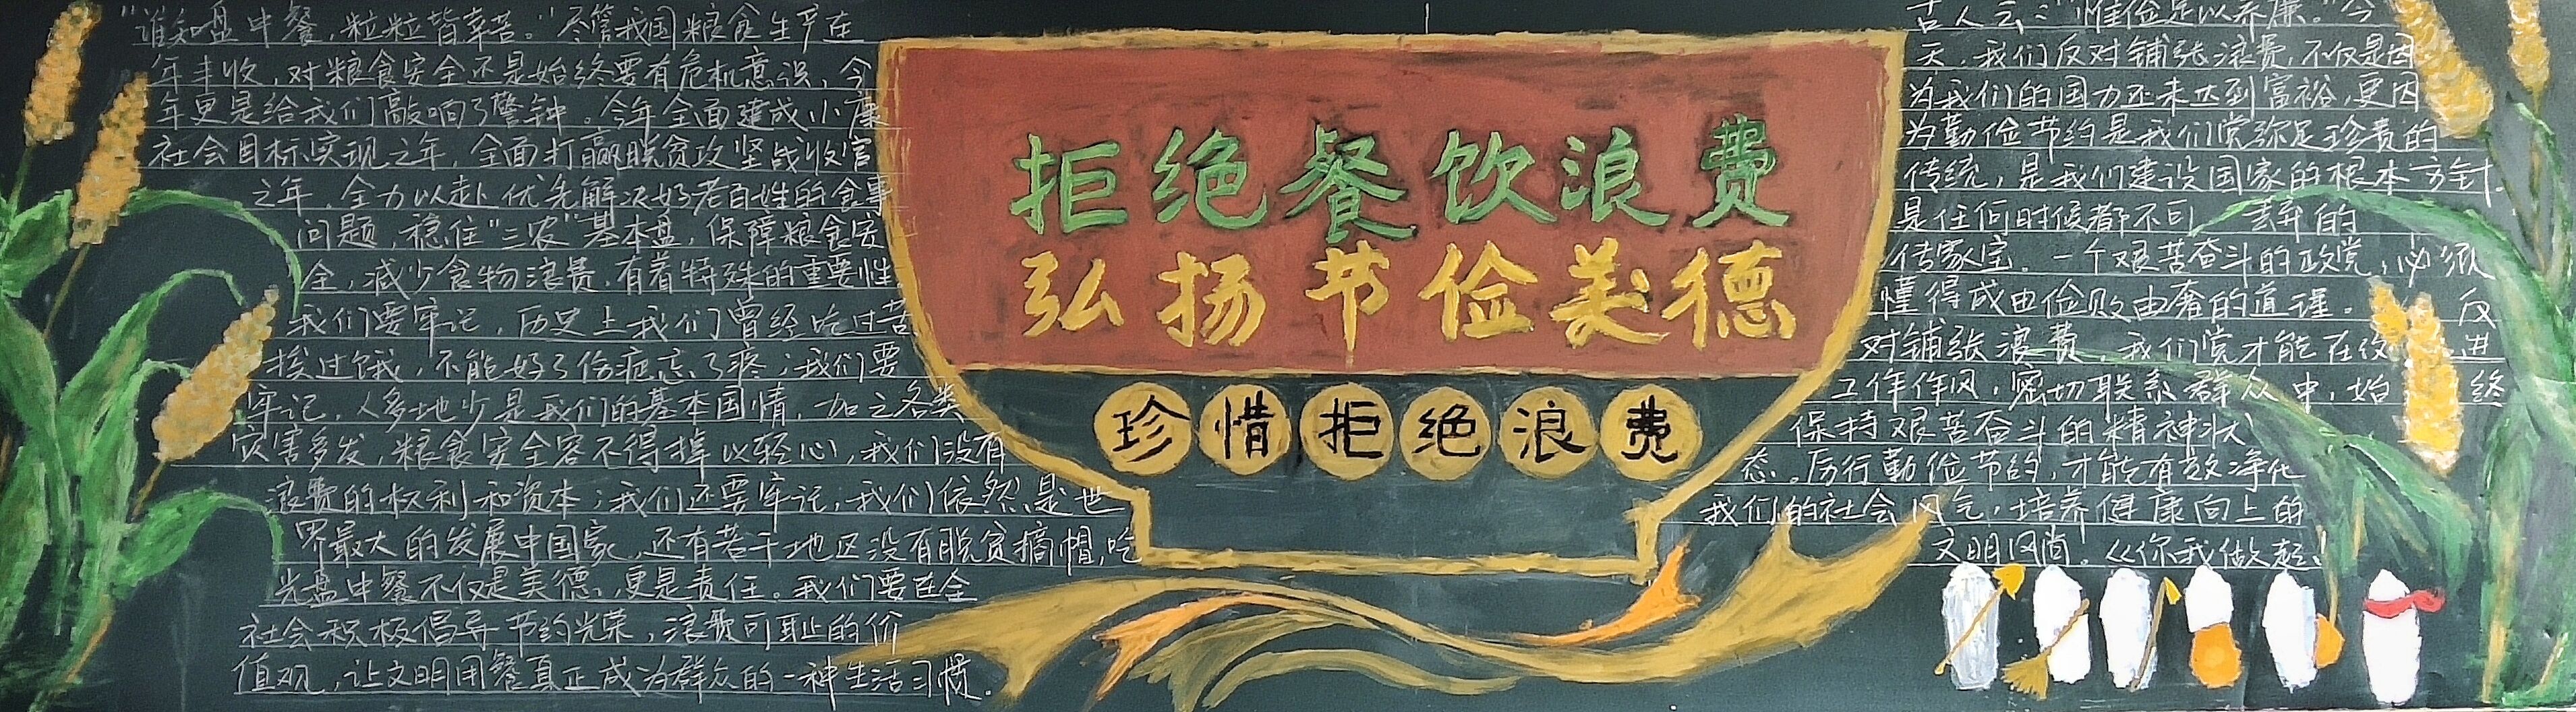 “谁知盘中餐，粒粒皆辛苦。”尽管我国粮食生产在
年丰收，对粮食安全还是始终要有危机意识，今
年更是给我们敲响了警钟。今年全面建成小康
社会目标实现之年，全面打赢脱贫攻坚战收官
之年，全力以赴优先解决好老百姓的食事
问题，稳住“三农”基本盘，保障粮食安
全，减少食物浪费，有着特殊的重要性
我们要牢记，历史上我们曾经吃过苦
挨过饿，不能好了伤疤忘了疼；我们要
牢记，人多地少是我们的基本国情，加之各类
灾害多发，粮食安全容不得掉以轻心，我们没有
浪费的权利和资本；我们还要牢记，我们依然是世
界最大的发展中国家，还有若干地区没有脱贫摘帽，吃
光盘中餐不仅是美德，更是责任。我们要在全
社会积极倡导节约光荣，浪费可耻的价
值观，让文明用餐真正成为群众的一种生活习惯。
拒绝餐饮浪费
弘扬节俭美德
珍惜拒绝浪费
古人云：“惟俭足以养廉。”今
天，我们反对铺张浪费，不仅是因
为我们的国力还未达到富裕，更因
为勤俭节约是我们党弥足珍贵的
传统，是我们建设国家的根本方针，
是任何时候都不可丢弃的
传家宝。一个艰苦奋斗的政党，必须
懂得成由俭败由奢的道理。反
对铺张浪费，我们党才能在改进
工作作风，密切联系群众中，始终
保持艰苦奋斗的精神状
态。厉行勤俭节约，才能有效净化
我们的社会风气，培养健康向上的
文明风尚！《你我做起！